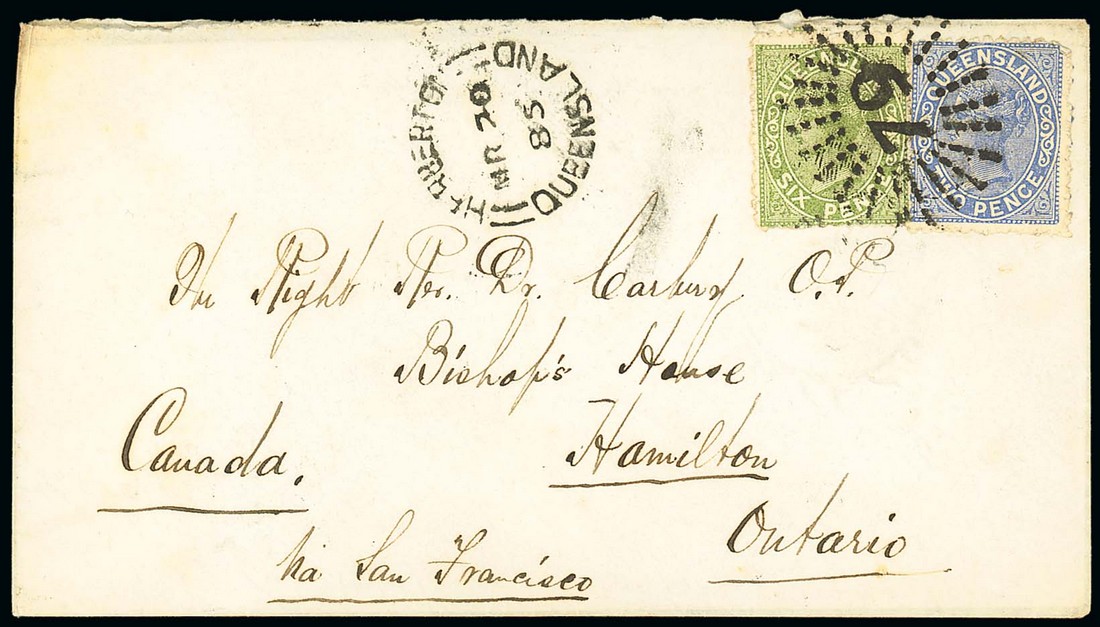 HERBERTON
MR 20
85
QUEENSLAND
QUEENSLAND
SIX PENCE
QUEENSLAND
TWO PENCE
The Right Rev. Dr. Carbery O.P.
Bishop's House
Hamilton
Ontario
Canada.
Via San Francisco